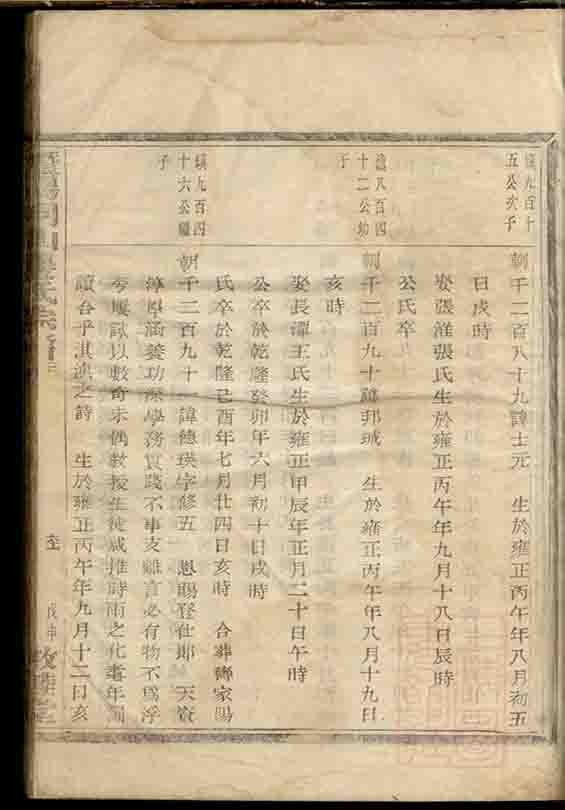 五公次子
朝千二百八十九諱士元 生於雍正丙午年八月初五
日戌時
娶張洋張氏生於雍正丙午年九月十八日辰時
公氏卒
八百四
十二公幼
子
朝千二百九十諱邦珹 生於雍正丙午年八月十九日
亥時
娶長潭王氏生於雍正甲辰年正月二十日午時
公卒於乾隆癸卯年六月初十日戌時
氏卒於乾隆己酉年七月廿四日亥時 合葬 家陽
九百四
十六公繼
子
朝千二百九十一諱德瑛字修五 恩賜登仕郎 天資
淳厚涵養功深學務實踐不事支離言必有物不為浮
夸屢試以數奇未偶教授生徒咸推時雨之化耄年
讀合乎淇澳之詩 生於雍正丙午年九月十二日亥
戊申
敦睦堂